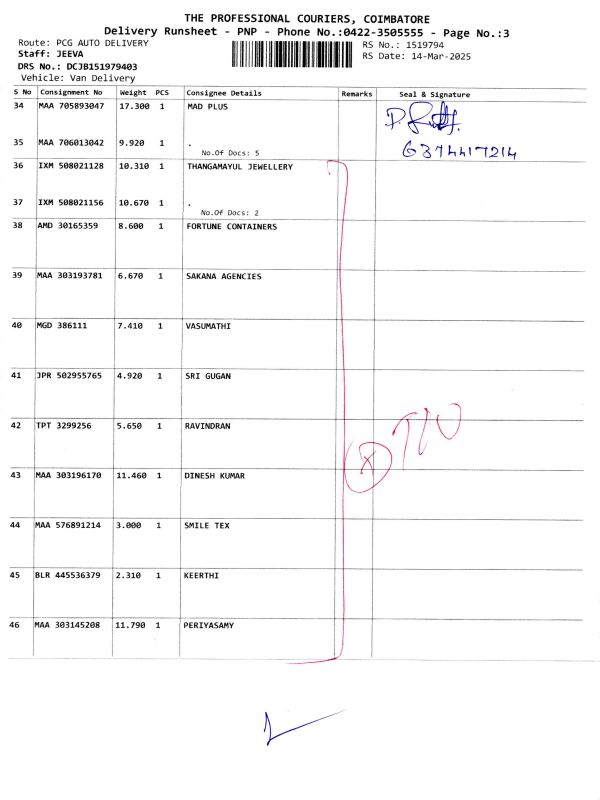 THE PROFESSIONAL COURIERS, COIMBATORE
Delivery Runsheet - PNP - Phone No.:0422-3505555 - Page No.:3
Route: PCG AUTO DELIVERY
RS No.: 1519794
Staff: JEEVA
RS Date: 14-Mar-2025
DRS No.: DCJB151979403
Vehicle: Van Delivery
S No Consignment No Weight PCS Consignee Details Remarks Seal & Signature
34 MAA 705893047 17.300 1 MAD PLUS
35 MAA 706013042 9.920 1 .
6374417214
No.Of Docs: 5
36 IXM 508021128 10.310 1 THANGAMAYUL JEWELLERY
37 IXM 508021156 10.670 1 .
No.Of Docs: 2
38 AMD 30165359 8.600 1 FORTUNE CONTAINERS
39 MAA 303193781 6.670 1 SAKANA AGENCIES
40 MGD 386111 7.410 1 VASUMATHI
41 JPR 502955765 4.920 1 SRI GUGAN
42 TPT 3299256 5.650 1 RAVINDRAN
43 MAA 303196170 11.460 1 DINESH KUMAR
44 MAA 576891214 3.000 1 SMILE TEX
45 BLR 445536379 2.310 1 KEERTHI
46 MAA 303145208 11.790 1 PERIYASAMY